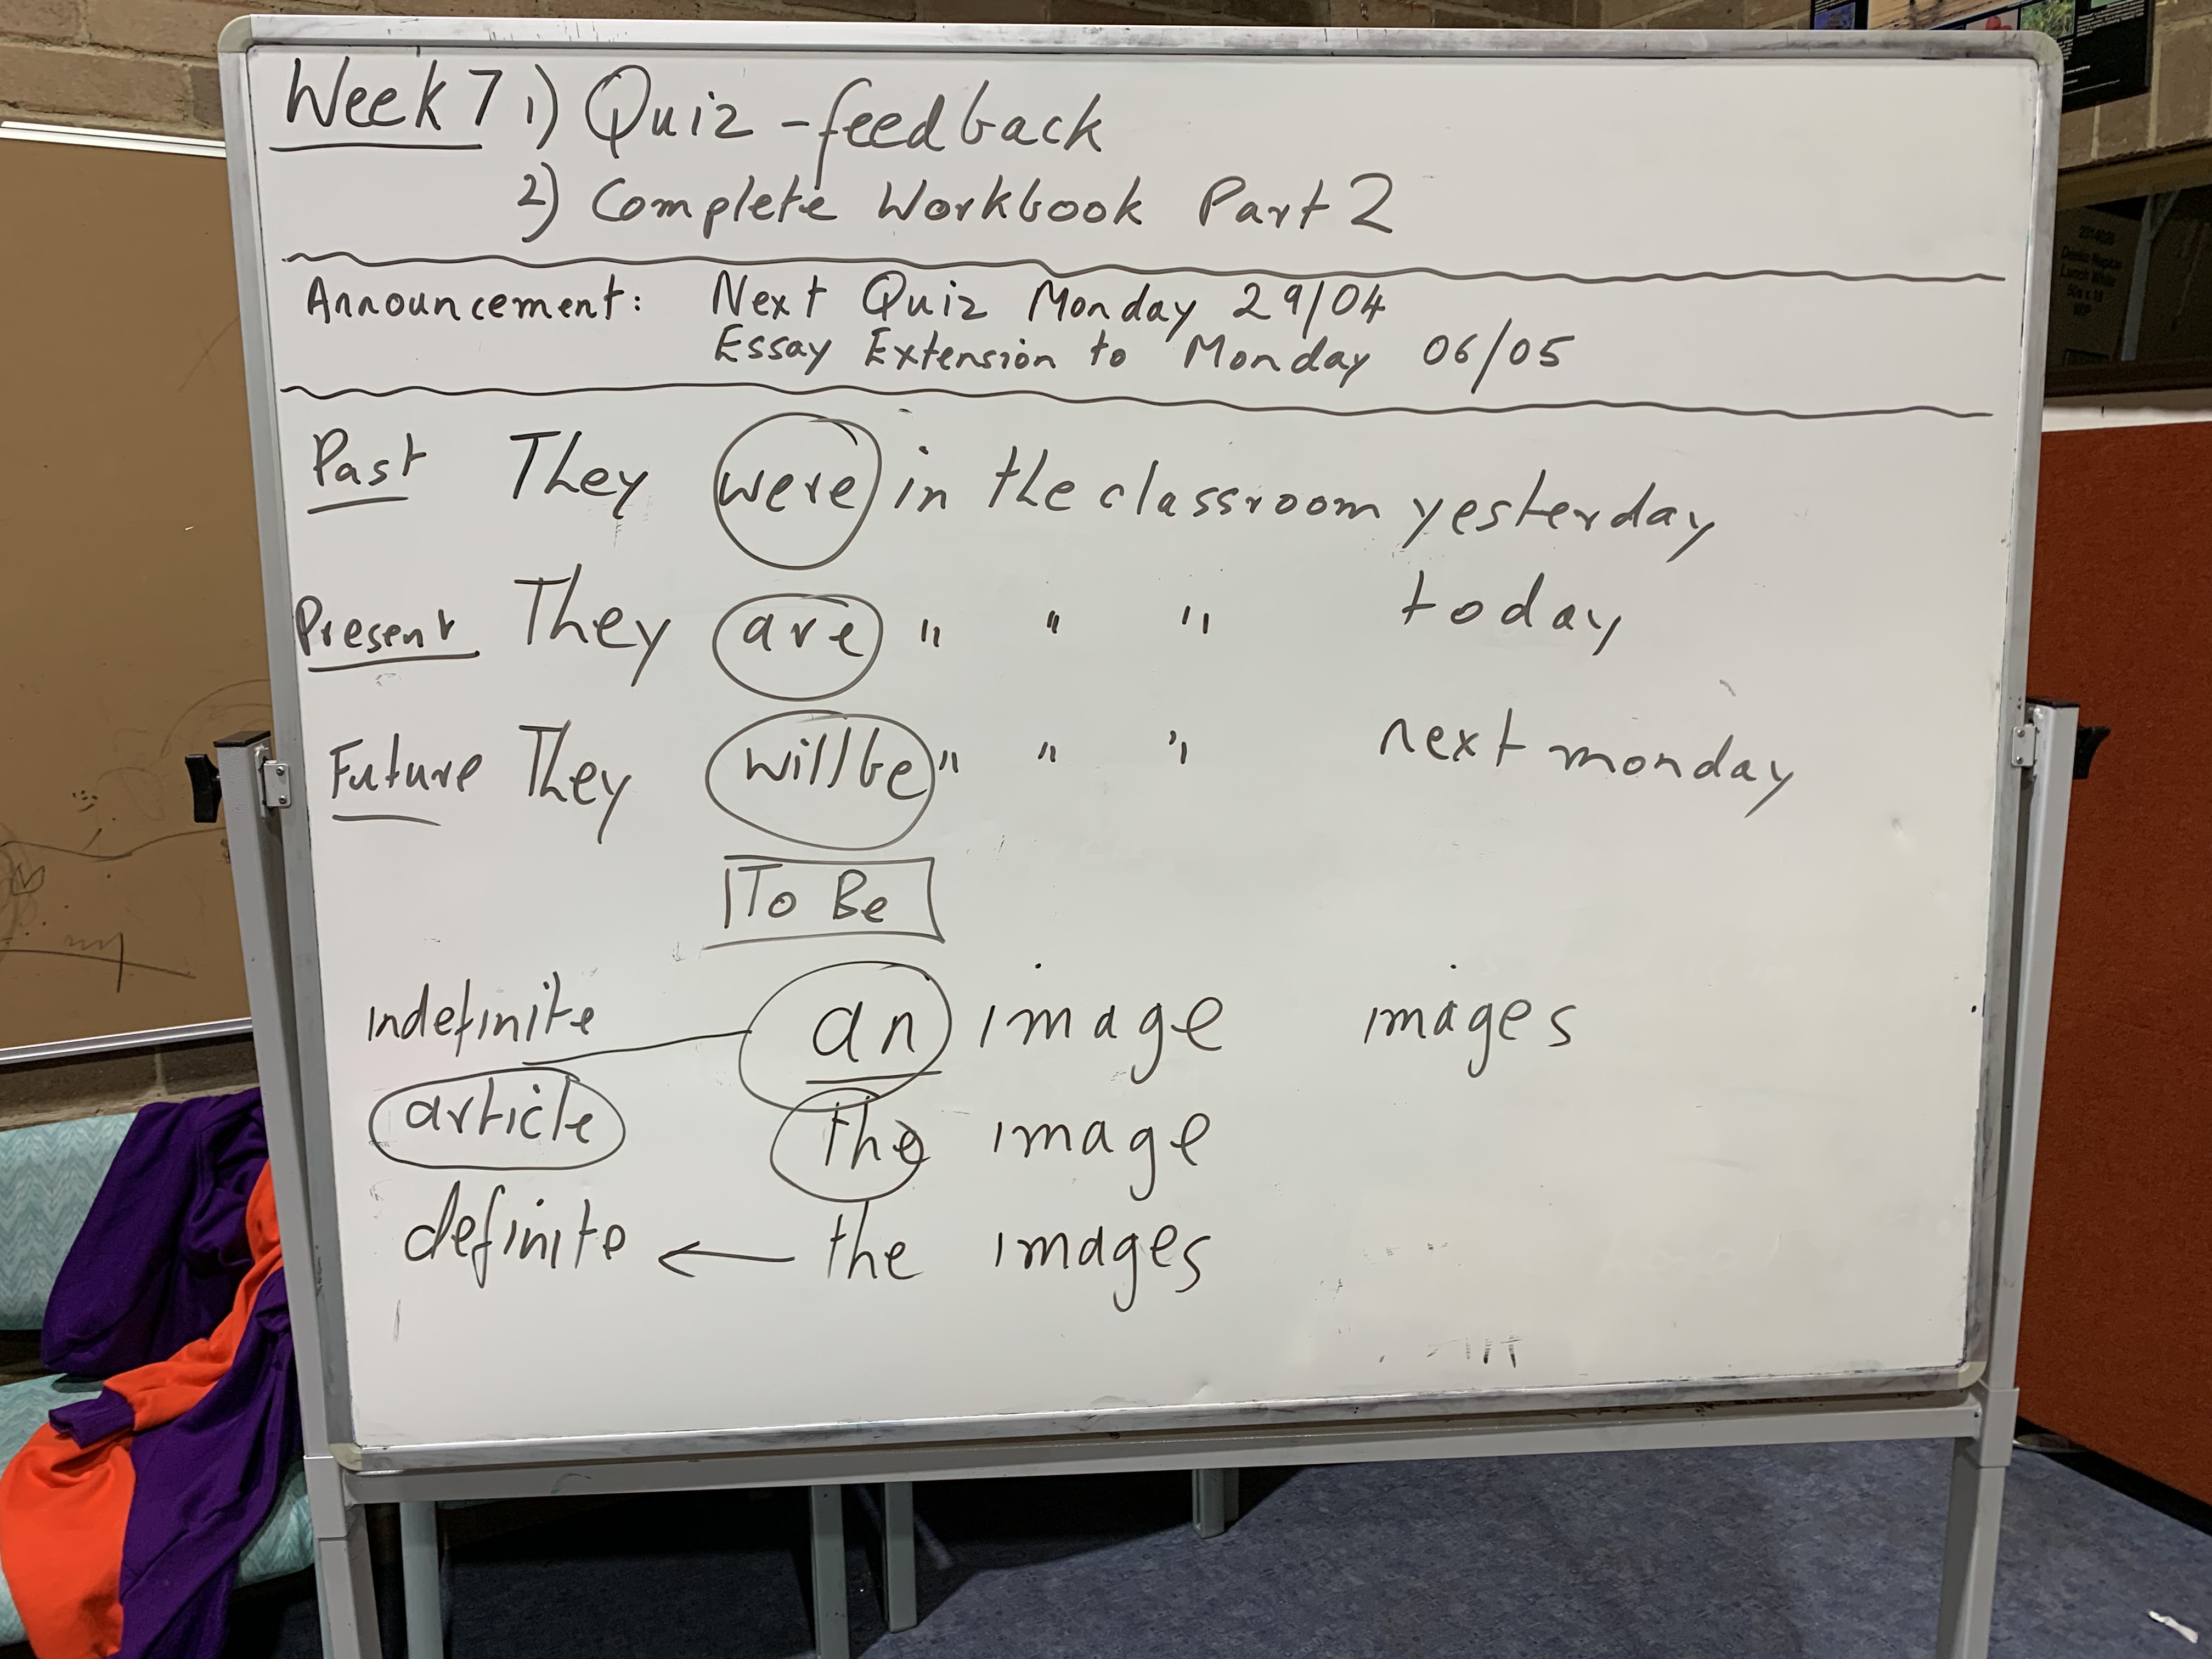 Week 7 1) Quiz - feedback
2) Complete Workbook Part 2
Announcement: Next Quiz Monday 29/04
Essay Extension to Monday 06/05
Past They were in the classroom yesterday
Present They are " " " today
Future They will be " " " next monday
To Be
indefinite an image images
article the image
definite ← the images